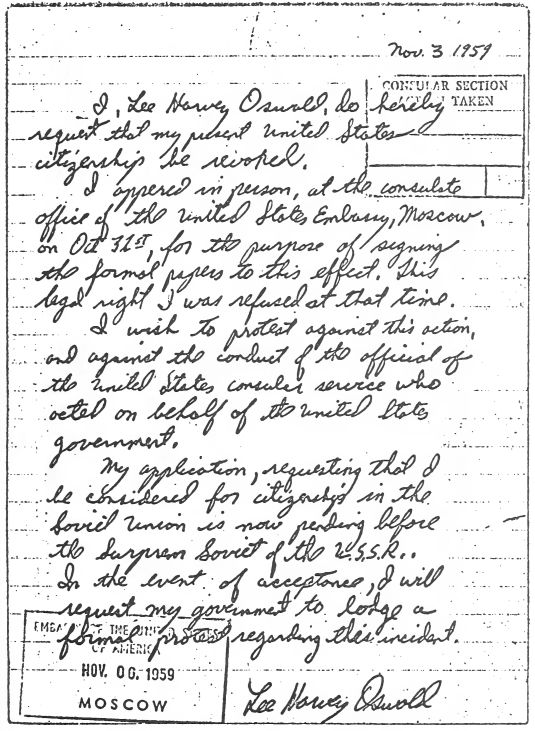 Nov. 3 1959
CONSULAR SECTION
TAKEN
I, Lee Harvey Oswald, do hereby
request that my present United States
citizenship be revoked.
I appered in person, at the consulate
office of the United States Embassy, Moscow,
on Oct 31st, for the purpose of signing
the formal papers to this effect. This
legal right I was refused at that time.
I wish to protest against this action,
and against the conduct of the official of
the United States consular service who
acted on behalf of the United States
government.
My application, requesting that I
be considered for citizenship in the
Soviet Union is now pending before
the Surprem Soviet of the U.S.S.R..
In the event of acceptance, I will
request my government to lodge a
formal protest regarding this incident.
EMBASSY OF THE UNITED STATES
OF AMERICA
NOV. 06. 1959
MOSCOW
Lee Harvey Oswald